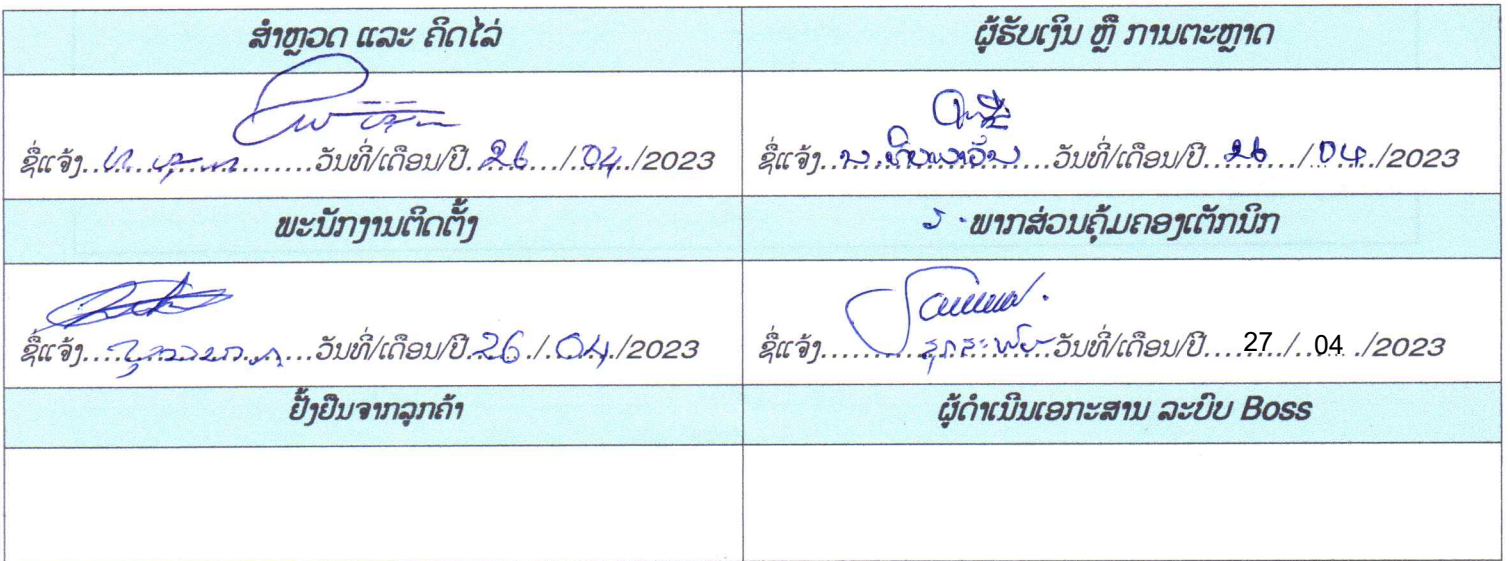 ສຳຫຼວດ ແລະ ຄິດໄລ່
ຜູ້ຮັບເງິນ ຫຼື ການຕະຫຼາດ
ຊື່ແຈ້ງ....................ວັນທີ່/ເດືອນ/ປີ..26..../.04../2023
ຊື່ແຈ້ງ....................ວັນທີ່/ເດືອນ/ປີ...26..../.04./2023
ພະນັກງານຕິດຕັ້ງ
ພາກສ່ວນຄຸ້ມຄອງເຕັກນິກ
ຊື່ແຈ້ງ....................ວັນທີ່/ເດືອນ/ປີ..26./.04./2023
ຊື່ແຈ້ງ....................ວັນທີ່/ເດືອນ/ປີ....27../..04../2023
ຢັ້ງຢືນຈາກລູກຄ້າ
ຜູ້ດຳເນີນເອກະສານ ລະບົບ Boss